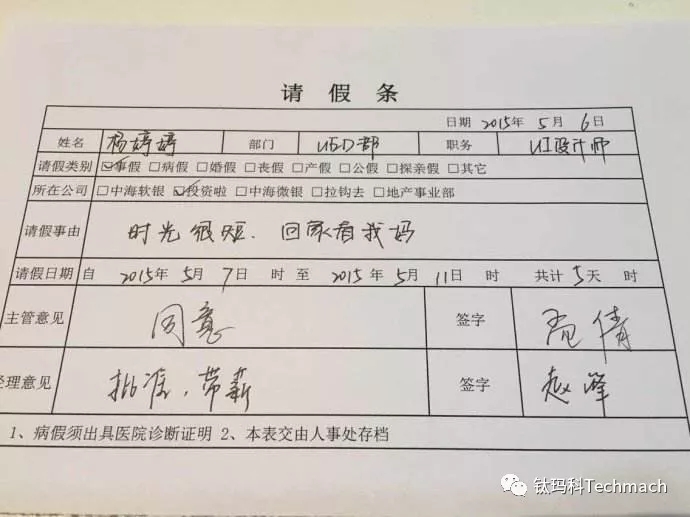 请假条
日期 2015年 5月 6日
姓名 杨婷婷 部门 UED部 职务 UI设计师
请假类别 ☑事假 □病假 □婚假 □丧假 □产假 □公假 □探亲假 □其它
所在公司 □中海软银 ☑投资啦 □中海微银 □拉钩去 □地产事业部
请假事由 时光很短.回家看我妈
请假日期 自 2015年 5月 7日 时 至 2015年 5月 11日 时 共计 5天 时
主管意见 同意 签字 倩
经理意见 批准,带薪 签字 赵峰
1、病假须出具医院诊断证明 2、本表交由人事处存档
钛玛科Techmach